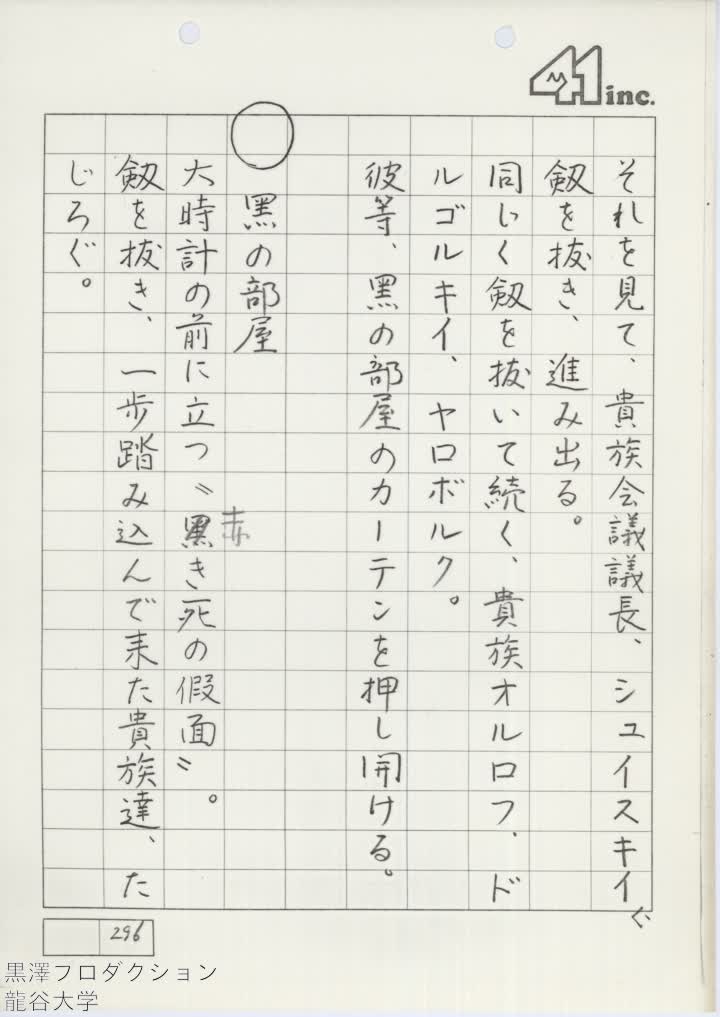 41 inc.
それを見て、貴族会議議長、シュイスキイ
剱を抜き、進み出る。
同じく剱を抜いて続く、貴族オルロフ、ド
ルゴルキイ、ヤロボルク。
彼等、黒の部屋のカーテンを押し開ける。
黒の部屋
大時計の前に立つ〝黒き死の假面〟。
赤
剱を抜き、一歩踏み込んで来た貴族達、た
じろぐ。
296
黒澤プロダクション
龍谷大学